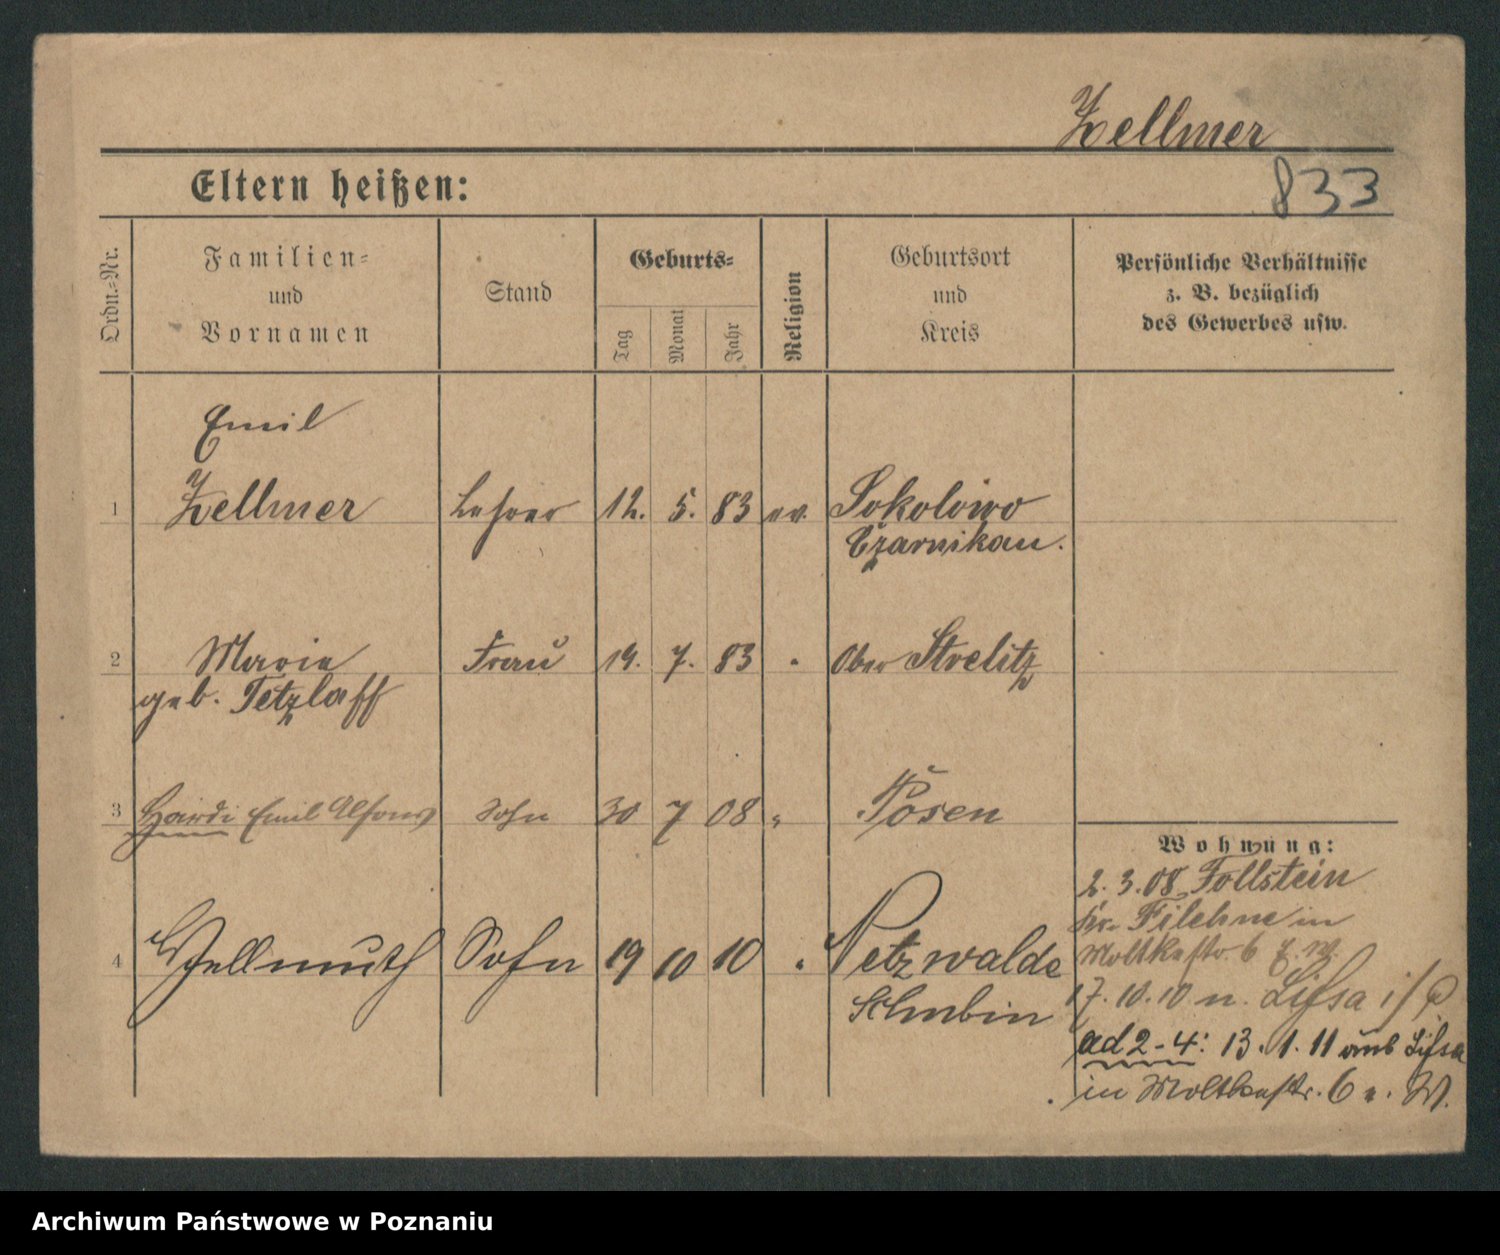 Zellmer
833
Eltern heißen:
Ordn.-Nr.
Familien-
und
Vornamen
Stand
Geburts-
Tag
Monat
Jahr
Religion
Geburtsort
und
Kreis
Persönliche Verhältnisse
z. B. bezüglich
des Gewerbes usw.
Emil
1 Zellmer Lehrer 12. 5. 83 ev. Sokolowo
Czarnikau.
2 Marie Frau 19. 7. 83 " Ober Strelitz
geb. Tetzlaff
3 Emil Alfons Sohn 30 7 08 " Posen
4 Hellmuth Sohn 19 10 10 " Netzwalde
Schubin
Wohnung:
2. 3. 08 Follstein
Kr. Filehne in
Moltkestr. 6 z. W.
17. 10. 10 n. Lissa i/P
ad 2-4: 13. 1. 11 aus Lissa
in Moltkestr. 6 z. W.
Archiwum Państwowe w Poznaniu